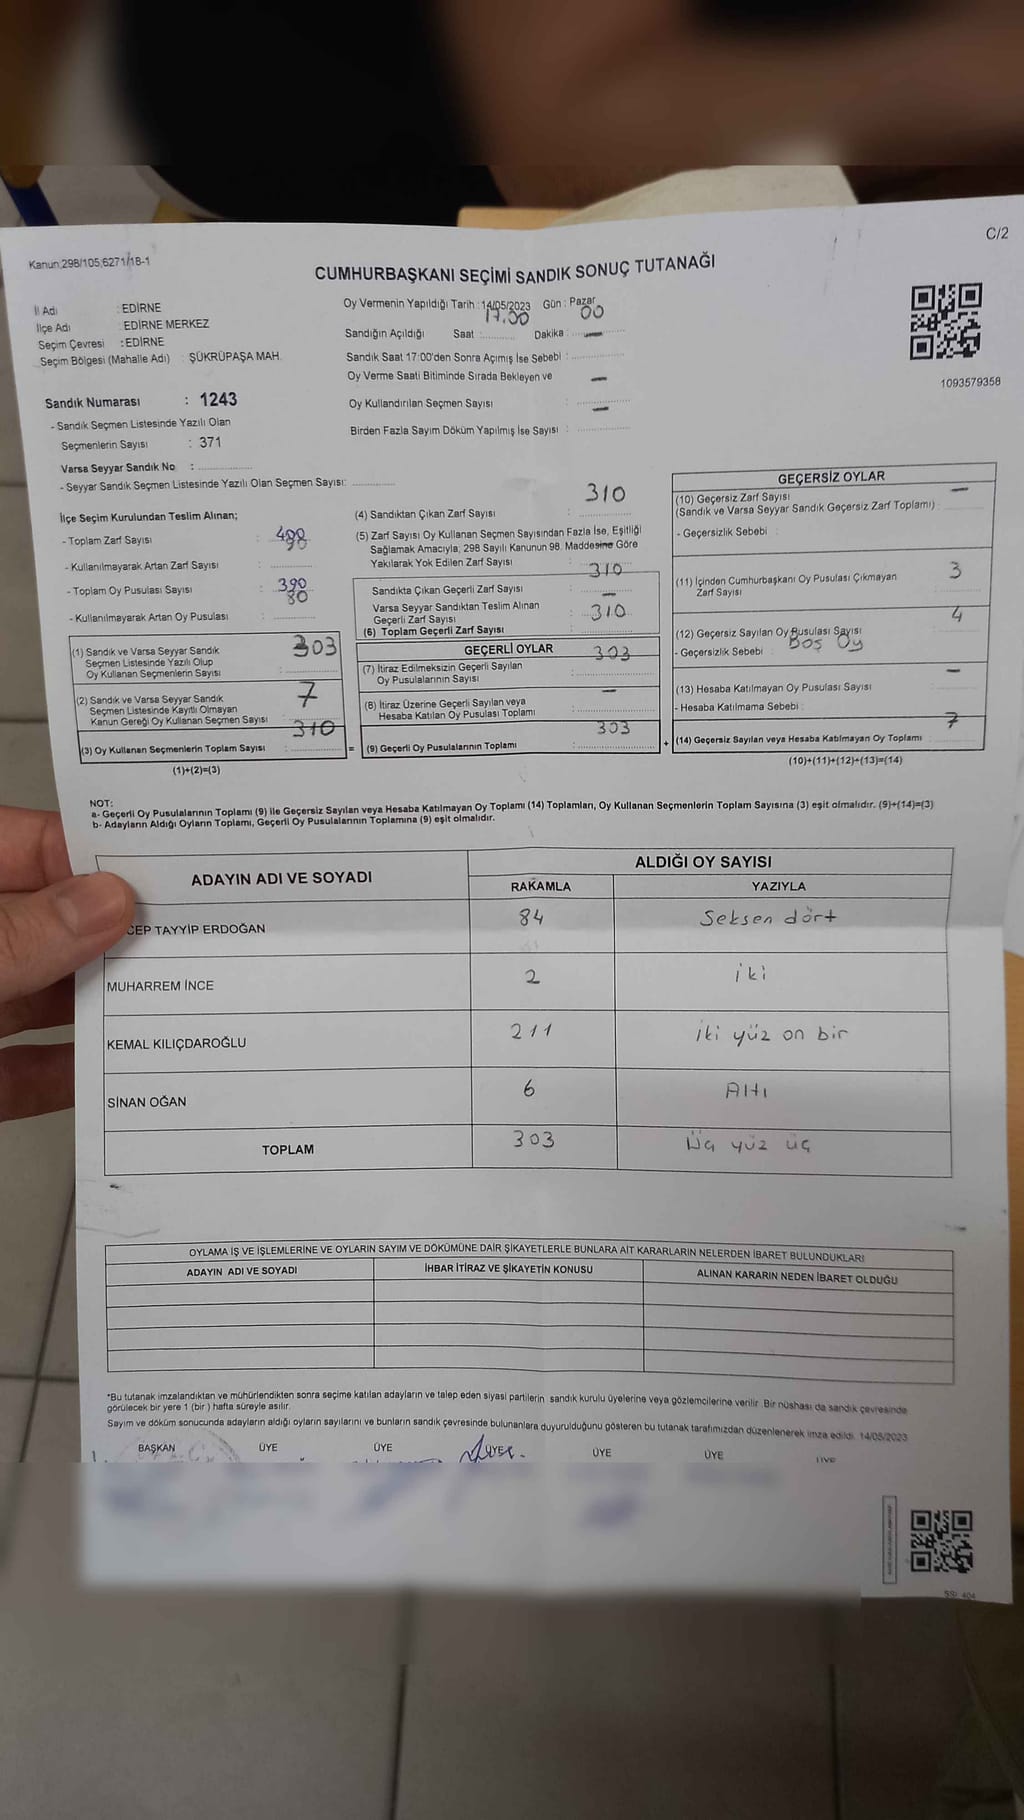 C/2
Kanun:298/105,6271/18-1
CUMHURBAŞKANI SEÇİMİ SANDIK SONUÇ TUTANAĞI
İl Adı : EDİRNE
İlçe Adı : EDİRNE MERKEZ
Seçim Çevresi : EDİRNE
Seçim Bölgesi (Mahalle Adı) : ŞÜKRÜPAŞA MAH.
Sandık Numarası : 1243
- Sandık Seçmen Listesinde Yazılı Olan
Seçmenlerin Sayısı : 371
Varsa Seyyar Sandık No :
- Seyyar Sandık Seçmen Listesinde Yazılı Olan Seçmen Sayısı:
Oy Vermenin Yapıldığı Tarih : 14/05/2023 Gün : Pazar
Sandığın Açıldığı Saat : 17.00 Dakika : 00
Sandık Saat 17:00'den Sonra Açımış İse Sebebi : —
Oy Verme Saati Bitiminde Sırada Bekleyen ve
Oy Kullandırılan Seçmen Sayısı : —
Birden Fazla Sayım Döküm Yapılmış İse Sayısı : —
1093579358
İlçe Seçim Kurulundan Teslim Alınan;
- Toplam Zarf Sayısı :
- Kullanılmayarak Artan Zarf Sayısı : 90
- Toplam Oy Pusulası Sayısı : 390
- Kullanılmayarak Artan Oy Pusulası : 80
(1) Sandık ve Varsa Seyyar Sandık
Seçmen Listesinde Yazılı Olup
Oy Kullanan Seçmenlerin Sayısı : 303
(2) Sandık ve Varsa Seyyar Sandık
Seçmen Listesinde Kayıtlı Olmayan
Kanun Gereği Oy Kullanan Seçmen Sayısı : 7
(3) Oy Kullanan Seçmenlerin Toplam Sayısı : 310 =
(1)+(2)=(3)
(4) Sandıktan Çıkan Zarf Sayısı : 310
(5) Zarf Sayısı Oy Kullanan Seçmen Sayısından Fazla İse, Eşitliği
Sağlamak Amacıyla; 298 Sayılı Kanunun 98. Maddesine Göre
Yakılarak Yok Edilen Zarf Sayısı : —
Sandıkta Çıkan Geçerli Zarf Sayısı : 310
Varsa Seyyar Sandıktan Teslim Alınan
Geçerli Zarf Sayısı : —
(6) Toplam Geçerli Zarf Sayısı : 310
GEÇERLİ OYLAR
(7) İtiraz Edilmeksizin Geçerli Sayılan
Oy Pusulalarının Sayısı : 303
(8) İtiraz Üzerine Geçerli Sayılan veya
Hesaba Katılan Oy Pusulası Toplamı : —
(9) Geçerli Oy Pusulalarının Toplamı : 303 +
GEÇERSİZ OYLAR
(10) Geçersiz Zarf Sayısı
(Sandık ve Varsa Seyyar Sandık Geçersiz Zarf Toplamı) : —
- Geçersizlik Sebebi :
(11) İçinden Cumhurbaşkanı Oy Pusulası Çıkmayan
Zarf Sayısı : 3
(12) Geçersiz Sayılan Oy Pusulası Sayısı : 4
- Geçersizlik Sebebi : Boş Oy
(13) Hesaba Katılmayan Oy Pusulası Sayısı : —
- Hesaba Katılmama Sebebi :
(14) Geçersiz Sayılan veya Hesaba Katılmayan Oy Toplamı : 7
(10)+(11)+(12)+(13)=(14)
NOT:
a- Geçerli Oy Pusulalarının Toplamı (9) ile Geçersiz Sayılan veya Hesaba Katılmayan Oy Toplamı (14) Toplamları, Oy Kullanan Seçmenlerin Toplam Sayısına (3) eşit olmalıdır. (9)+(14)=(3)
b- Adayların Aldığı Oyların Toplamı, Geçerli Oy Pusulalarının Toplamına (9) eşit olmalıdır.
ADAYIN ADI VE SOYADI ALDIĞI OY SAYISI
RAKAMLA YAZIYLA
CEP TAYYİP ERDOĞAN 84 Seksen dört
MUHARREM İNCE 2 iki
KEMAL KILIÇDAROĞLU 211 iki yüz on bir
SİNAN OĞAN 6 Altı
TOPLAM 303 Üç yüz üç
OYLAMA İŞ VE İŞLEMLERİNE VE OYLARIN SAYIM VE DÖKÜMÜNE DAİR ŞİKAYETLERLE BUNLARA AİT KARARLARIN NELERDEN İBARET BULUNDUKLARI
ADAYIN ADI VE SOYADI İHBAR İTİRAZ VE ŞİKAYETİN KONUSU ALINAN KARARIN NEDEN İBARET OLDUĞU
*Bu tutanak imzalandıktan ve mühürlendikten sonra seçime katılan adayların ve talep eden siyasi partilerin sandık kurulu üyelerine veya gözlemcilerine verilir. Bir nüshası da sandık çevresinde
görülecek bir yere 1 (bir ) hafta süreyle asılır.
Sayım ve döküm sonucunda adayların aldığı oyların sayılarını ve bunların sandık çevresinde bulunanlara duyurulduğunu gösteren bu tutanak tarafımızdan düzenlenerek imza edildi. 14/05/2023
BAŞKAN ÜYE ÜYE ÜYE ÜYE ÜYE ÜYE